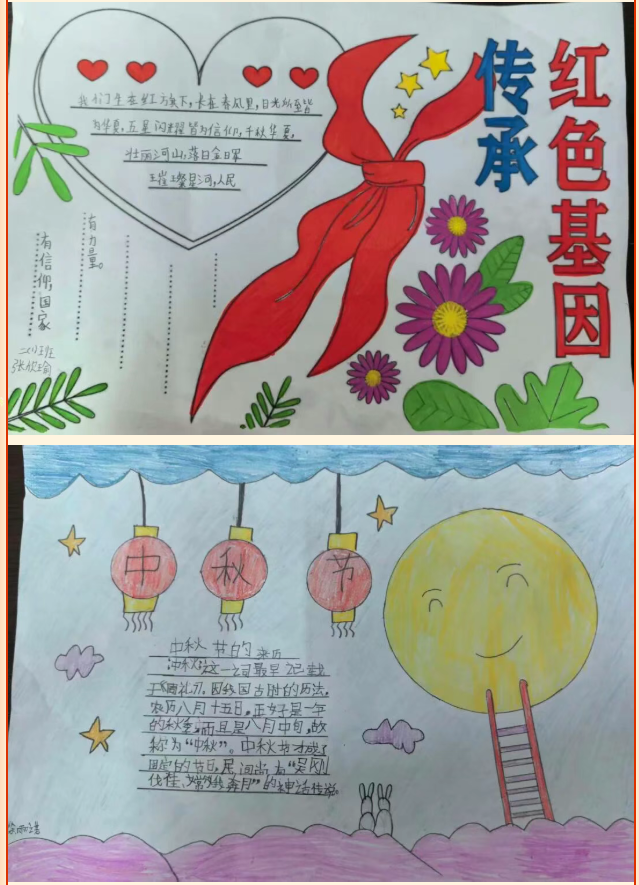 红色基因
传承
我们生在红旗下,长在春风里,目光所至皆
为华夏,五星闪耀皆为信仰,千秋华夏,
壮丽河山,落日金晖
璀璨星河,人民
有力量。
有信仰,国家
张欣瑜
中秋节
中秋节的来历
中秋这一词最早记载
于《周礼》。因我国古时的历法,
农历八月十五日,正好是一年
的秋季,而且是八月中旬,故
称为“中秋”。中秋节才成了
固定的节日,民间尚有“吴刚
伐桂、“嫦娥奔月”的神话传说。